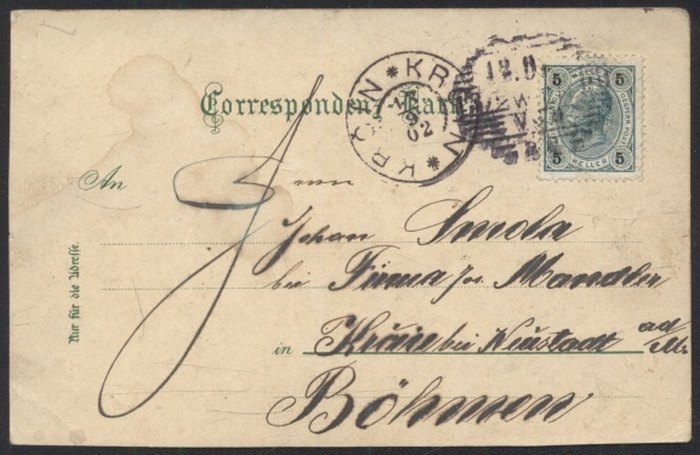 Correspondenz-Karte.
KRČÍN * KRČÍN *
02
12.
5 5
HELLER
5 5
An Herrn
Johan Smola
bei Firma Jos. Mandler
in Kröin bei Neustadt ad
M.
Böhmen
Nur für die Adresse.